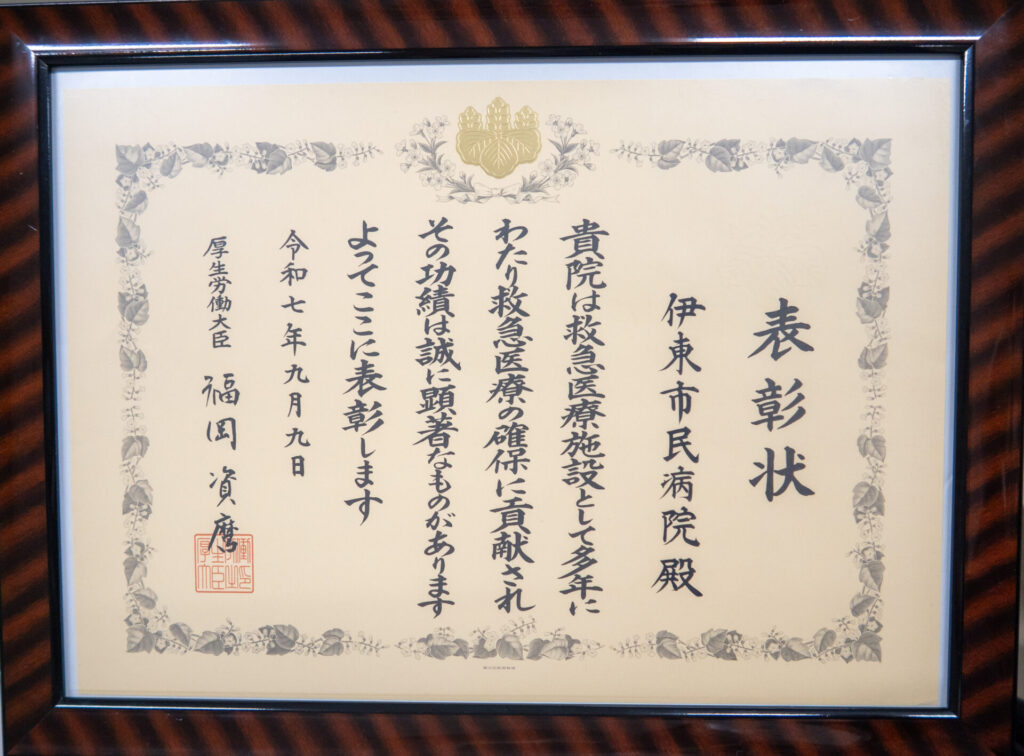 表彰状
伊東市民病院殿
貴院は救急医療施設として多年に
わたり救急医療の確保に貢献され
その功績は誠に顕著なものがあります
よってここに表彰します
令和七年九月九日
厚生労働大臣 福岡資麿